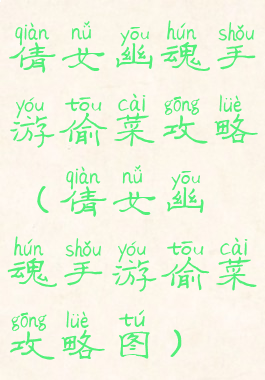 qiàn nǚ yōu hún shǒu
倩女幽魂手
yóu tōu cài gōng lüè
游偷菜攻略
qiàn nǚ yōu
（倩女幽
hún shǒu yóu tōu cài
魂手游偷菜
gōng lüè tú
攻略图）